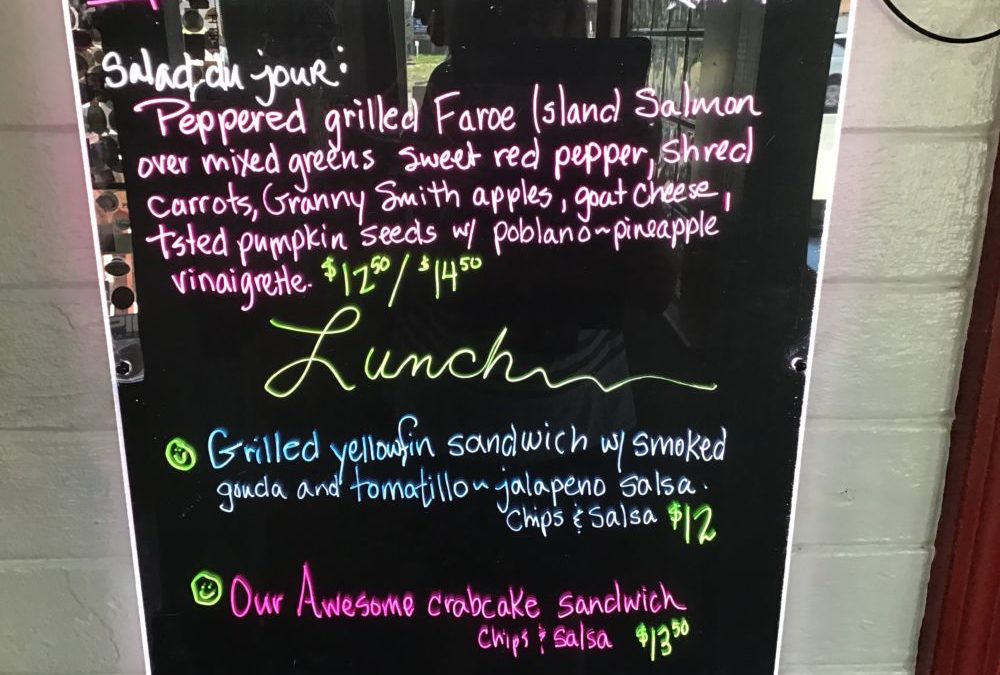 Salad du jour:
Peppered grilled Faroe Island Salmon
over mixed greens sweet red pepper, shred
carrots, Granny Smith apples, goat cheese,
tsted pumpkin seeds w/ poblano~pineapple
vinaigrette. $12.50 / $14.50
Lunch
Grilled yellowfin sandwich w/ smoked
gouda and tomatillo~jalapeno salsa.
Chips & Salsa $12
Our Awesome crabcake sandwich
Chips & Salsa $13.50